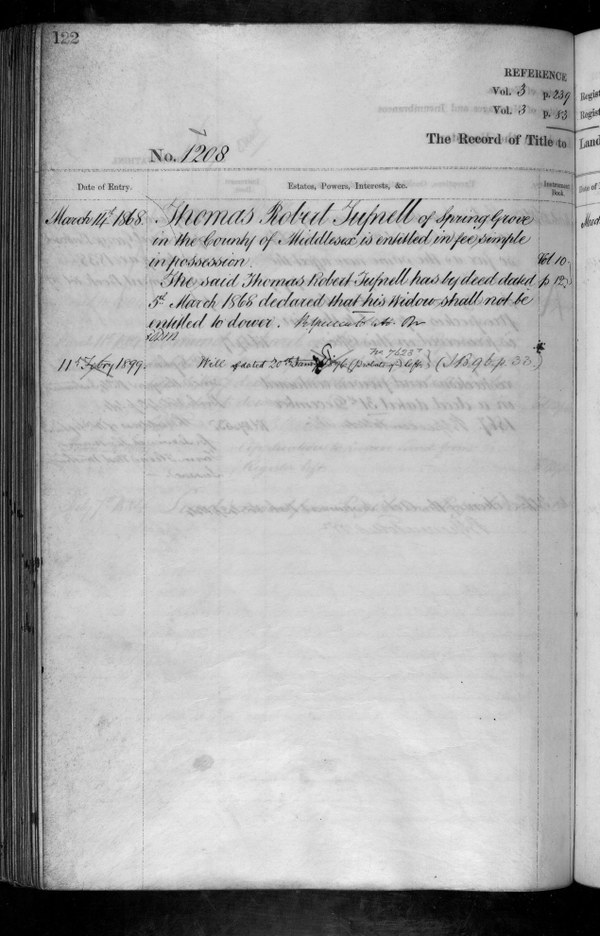 122
REFERENCE
Vol. 3 p. 239
Vol. 3 p. 53
The Record of Title to
No. 1208
Date of Entry.
Estates, Powers, Interests, &c.
Instrument Book.
March 14th 1868
Thomas Robert Tufnell of Spring Grove
in the County of Middlesex is entitled in fee simple
in possession.
Vol 10
The said Thomas Robert Tufnell has by deed dated
p 12
5th March 1868 declared that his Widow shall not be
entitled to dower.
11th Febry 1899.
Will dated 20th
No 7628
(I.B. 96 p. 33.)
Regist
Regist
Land
Date of